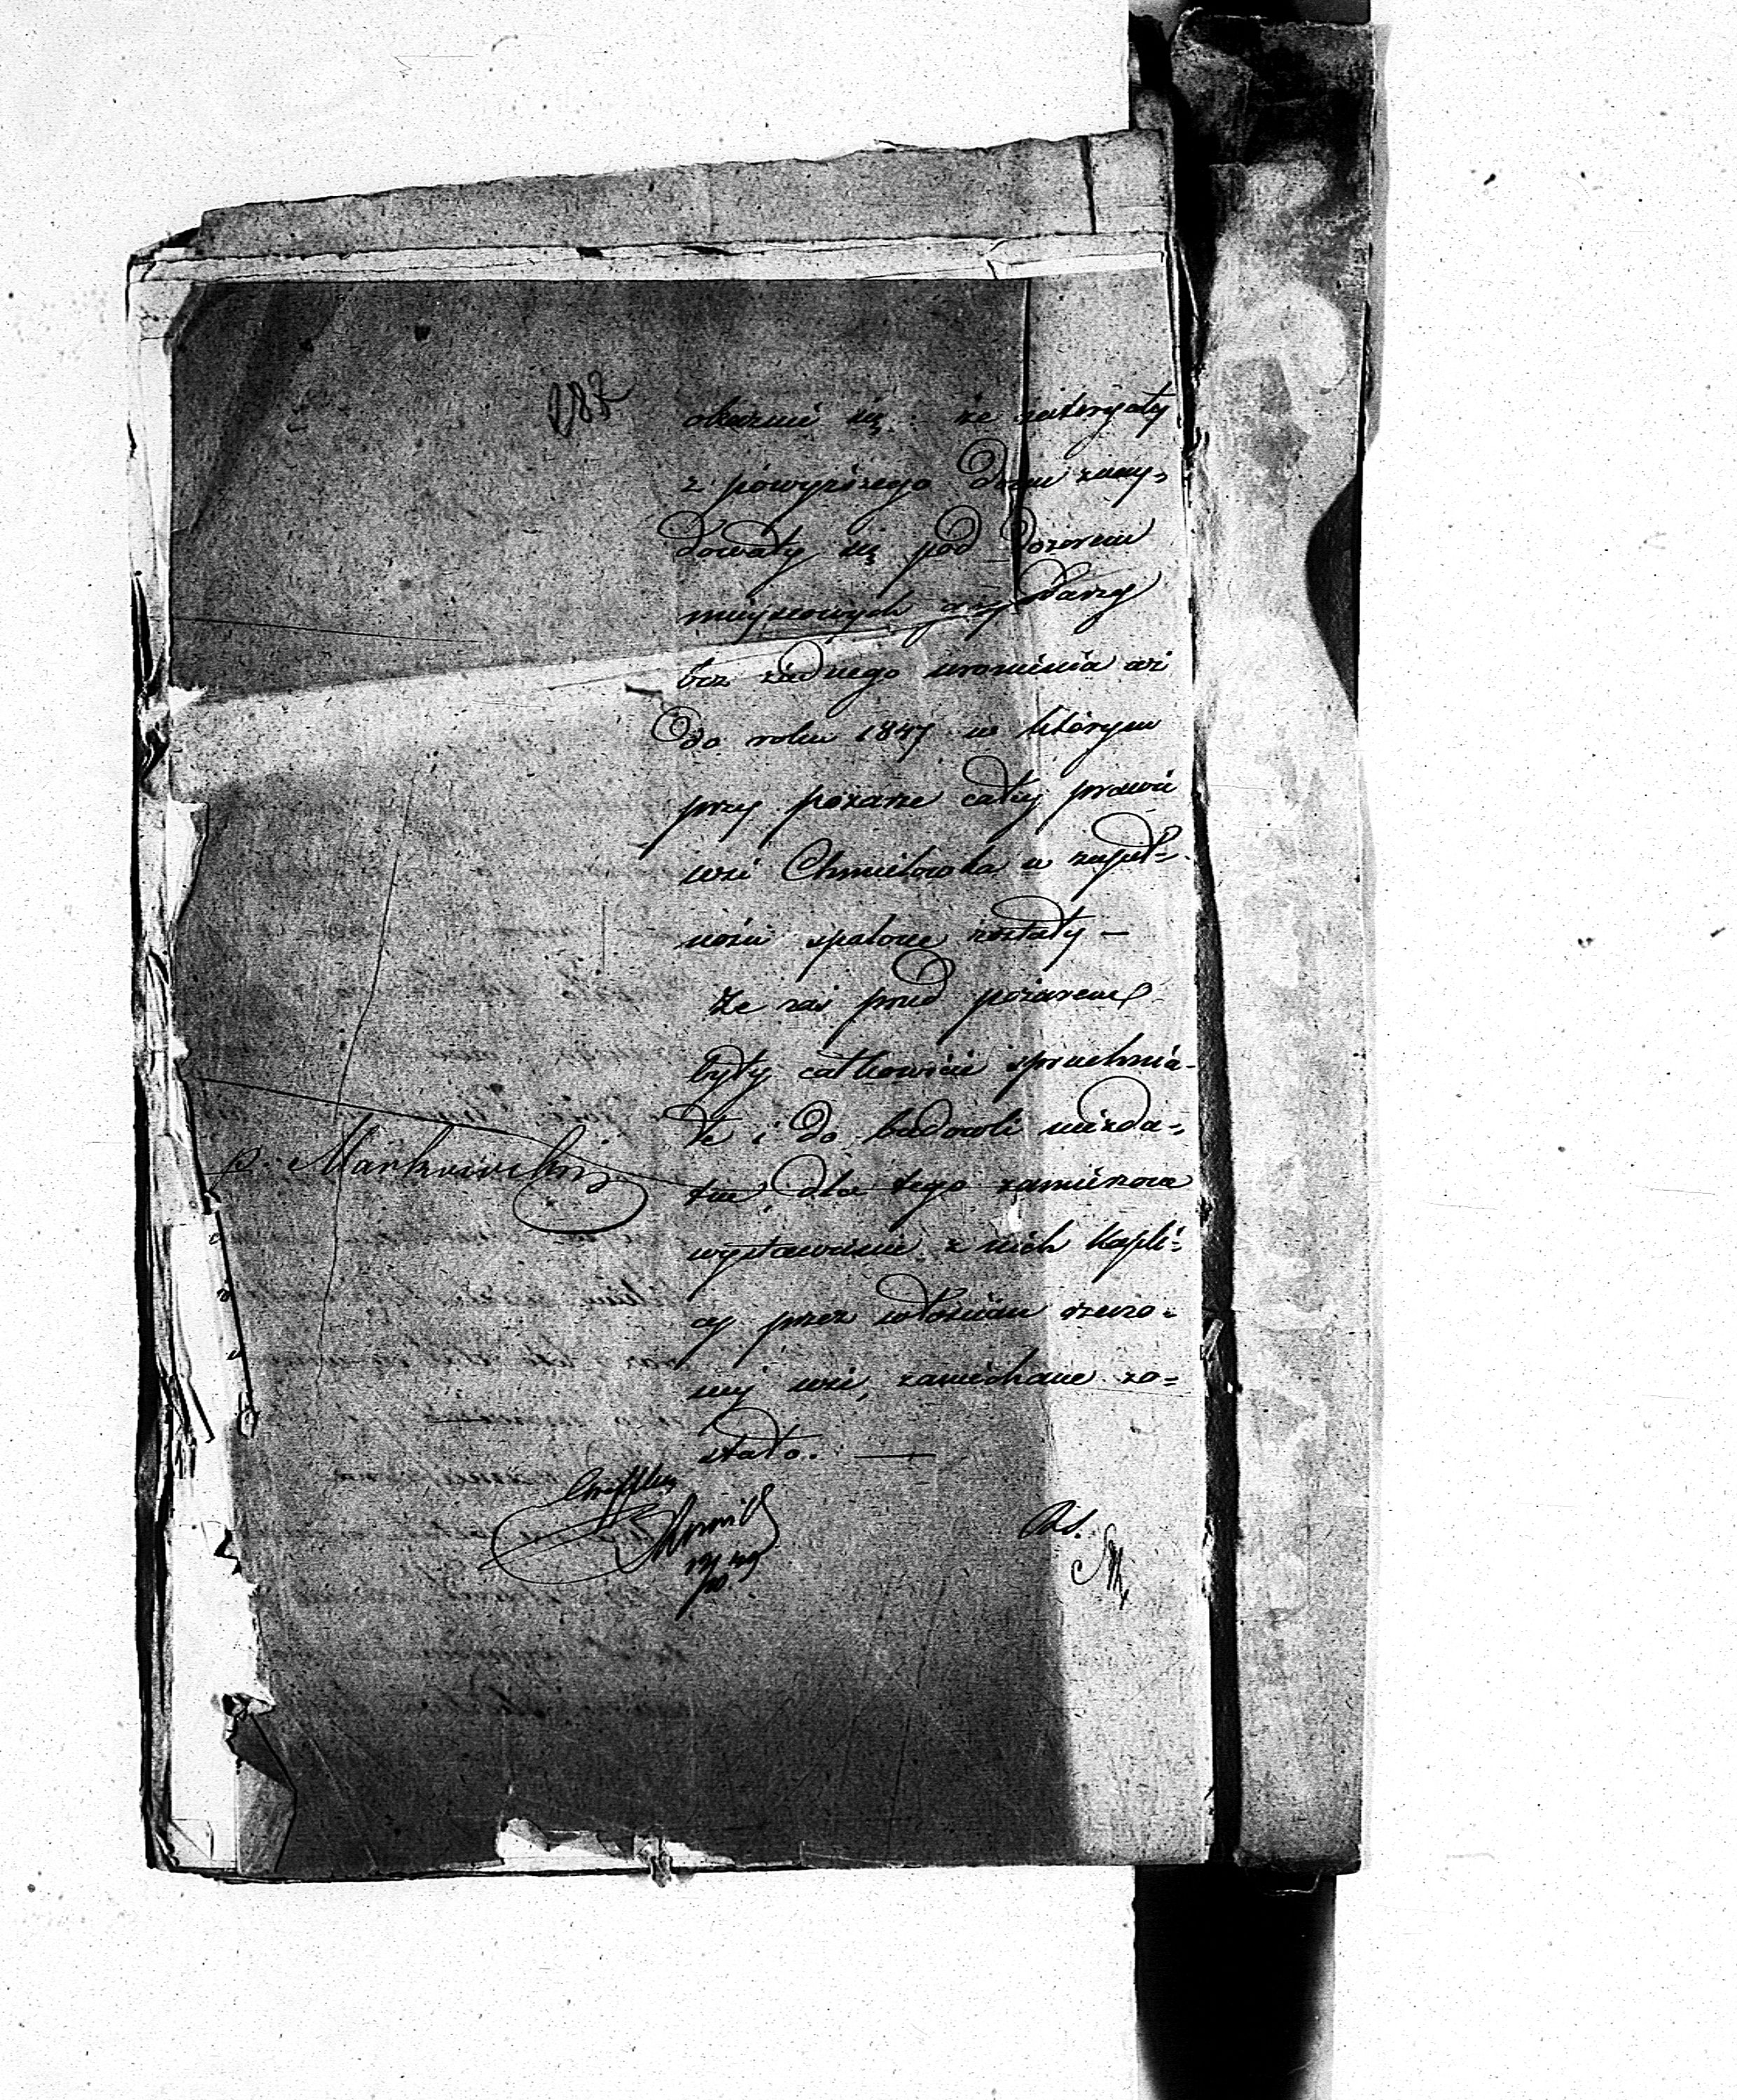 287
okazuie się. że materyały
z powyższego Domu znay-
dowały się pod dozorem
mieyscowych gospodarzy
bez żadnego uronienia aż
do roku 1847 w którym
przy pożarze całéj prawie
wsi Chmielowka w zupeł-
ności spalone zostały —
Że zaś przed pożarem
były całkowicie spruchnia-
łe i do budowli niezda-
tne dla tego zamierzone
wystawienie z nich Kapli-
cy przez włościan rzeczo-
nej wsi, zaniechane zo-
stało. —
p. Mankowski